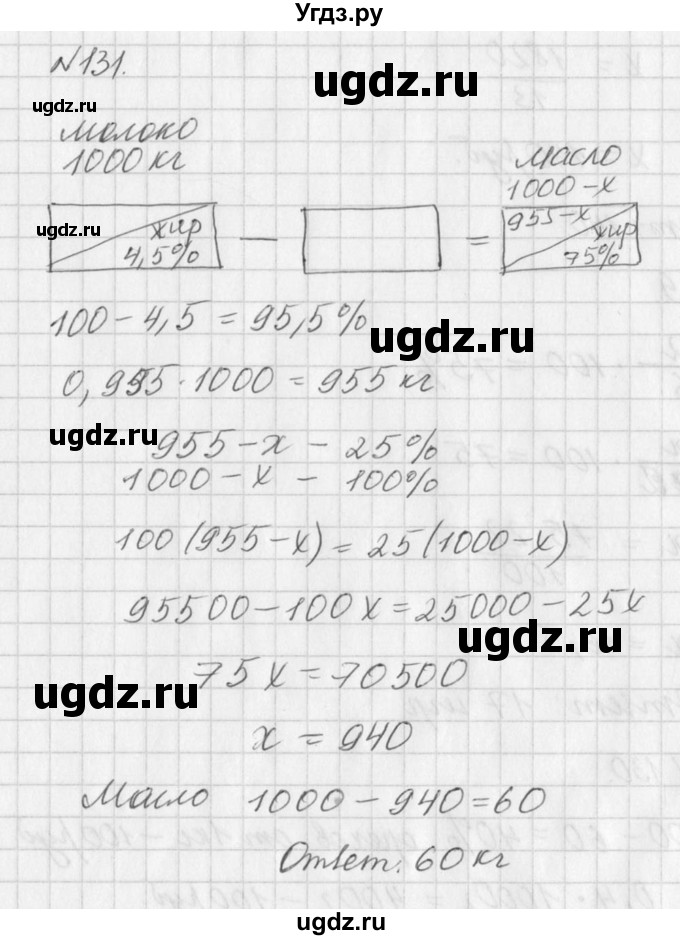 Угдз.ру
№131.
ugdz.ru
ugdz.ru
молоко
1000 кг
масло
1000-x
ugdz.ru
жир
4,5%
—
=
955-x
жир
75%
100-4,5=95,5%
ugdz.ru
0,955·1000=955 кг
ugdz.ru
955-x - 25%
1000-x - 100%
100(955-x)=25(1000-x)
95500-100x=25000-25x
ugdz.ru
75x=70500
ugdz.ru
x=940
Масло 1000-940=60
Ответ. 60 кг
ugdz.ru